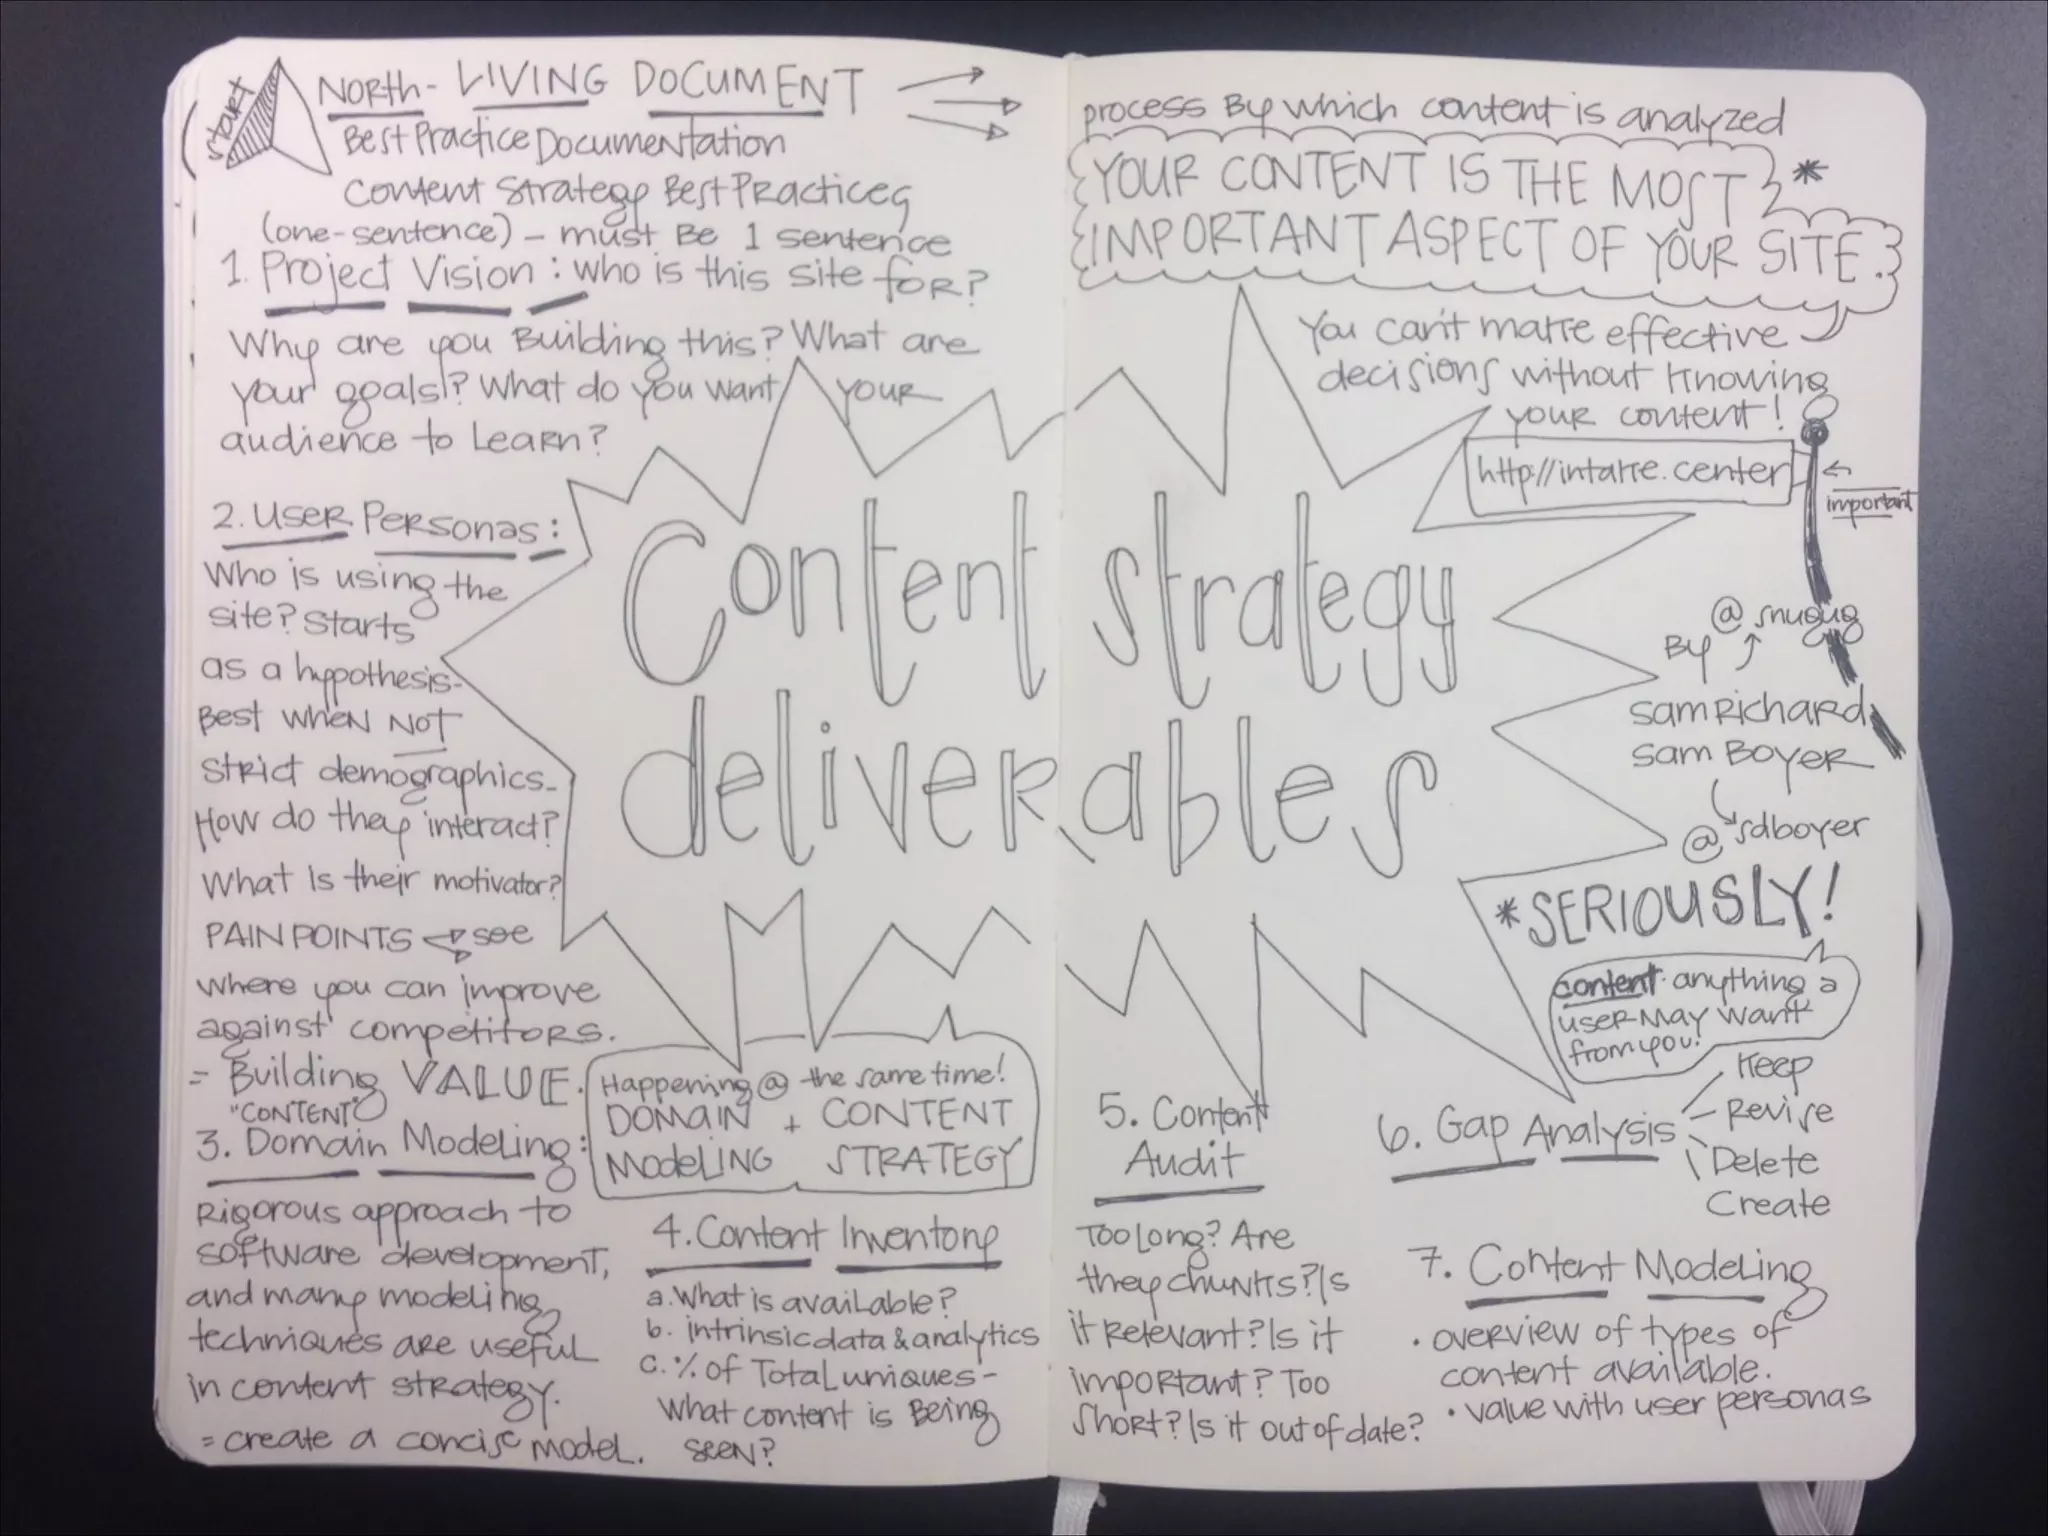 start
NORTH - LIVING DOCUMENT
Best Practice Documentation
Content Strategy Best Practices
(one-sentence) - must Be 1 sentence
1. Project Vision : who is this site for?
Why are you Building this? What are
your goals? What do you want your
audience to Learn?
2. User Personas:
Who is using the
site? Starts
as a hypothesis-
Best when NOT
strict demographics-
How do they interact?
What is their motivator?
PAIN POINTS see
where you can improve
against competitors.
= Building VALUE.
"CONTENT"
3. Domain Modeling:
Rigorous approach to
software development,
and many modeling
techniques are useful
in content strategy.
= create a concise model.
Content strategy
deliverables
Happening @ the same time!
DOMAIN + CONTENT
MODELING STRATEGY
4. Content Inventory
a. What is available?
b. intrinsic data & analytics
c. % of Total uniques -
what content is Being
seen?
process By which content is analyzed
YOUR CONTENT IS THE MOST *
IMPORTANT ASPECT OF YOUR SITE.
You can't make effective
decisions without knowing
your content!
http://intake.center
important
@snugug
By
sam Richard
sam Boyer
@sdboyer
*SERIOUSLY!
content: anything a
user may want
from you!
5. Content
Audit
Too Long? Are
they chunks? Is
it relevant? Is it
important? Too
short? Is it out of date?
6. Gap Analysis
Keep
Revise
Delete
Create
7. Content Modeling
• overview of types of
content available.
• value with user personas